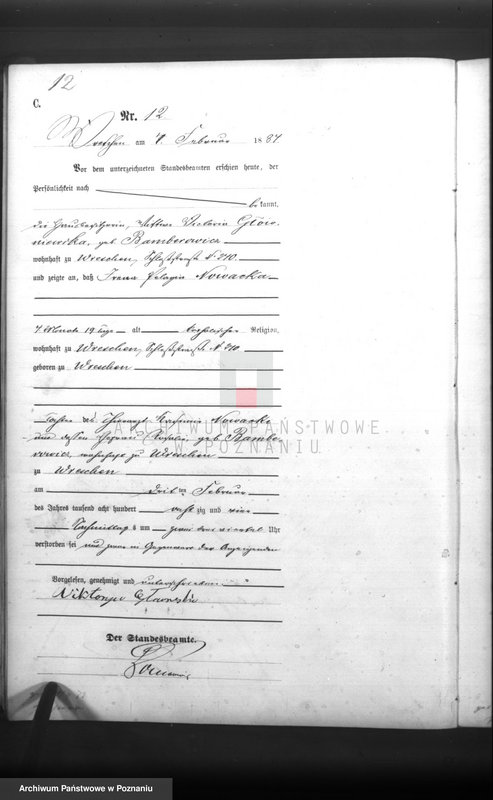 12
C.
Nr. 12
Wreschen am 4. Februar 1884.
Vor dem unterzeichneten Standesbeamten erschien heute, der
Persönlichkeit nach
bekannt,
die Hausbesitzerin, Wittwe Victoria Głow-
geb. Bamberowicz
wohnhaft zu Wreschen, Schloßstraße № 210.
und zeigte an, daß Irena Pelagia Nowacka
7 Monate 19 Tage alt katholischer Religion,
wohnhaft zu Wreschen, Schloßstraße № 210
geboren zu Wreschen
Tochter des Thierarzt Nowacki
und dessen Ehefrau Rosalie, geb. Bambe-
rowicz, wohnhaft zu Wreschen
zu Wreschen
am dritten Februar
des Jahres tausend acht hundert achtzig und vier
Nachmittag s um Uhr
verstorben sei und zwar in Gegenwart der Anzeigenden
Vorgelesen, genehmigt und unterschrieben
Der Standesbeamte.
ARCHIWUM PAŃSTWOWE
W POZNANIU
Archiwum Państwowe w Poznaniu